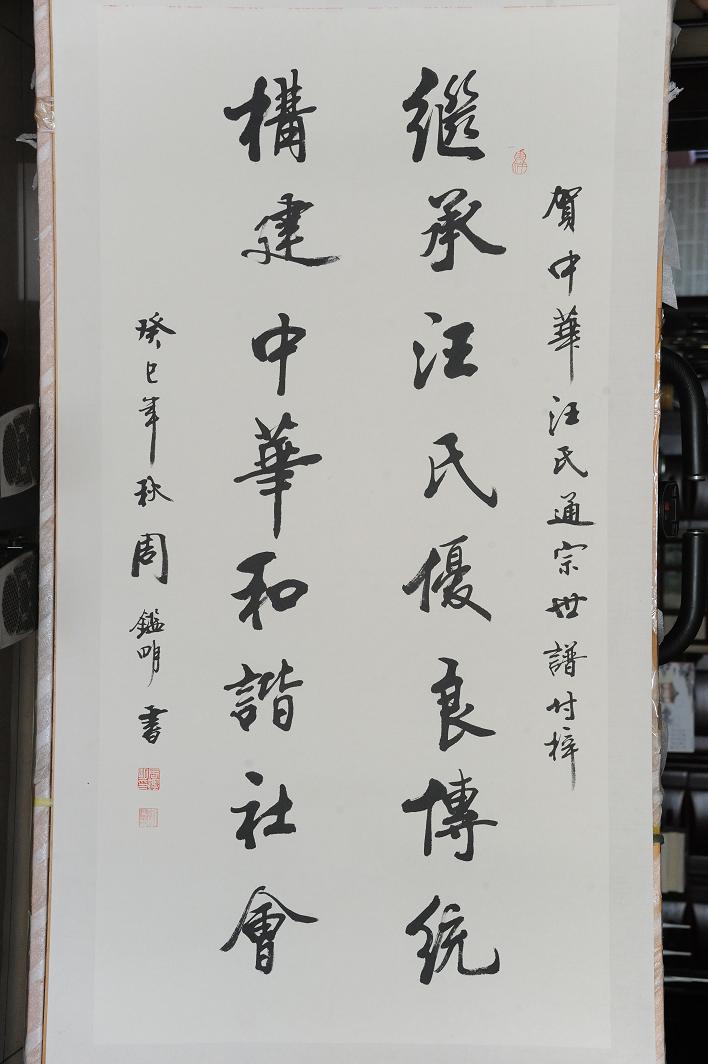 賀中華汪氏通宗世譜付梓
繼承汪氏優良博統
構建中華和諧社會
癸巳年秋周鑑明書